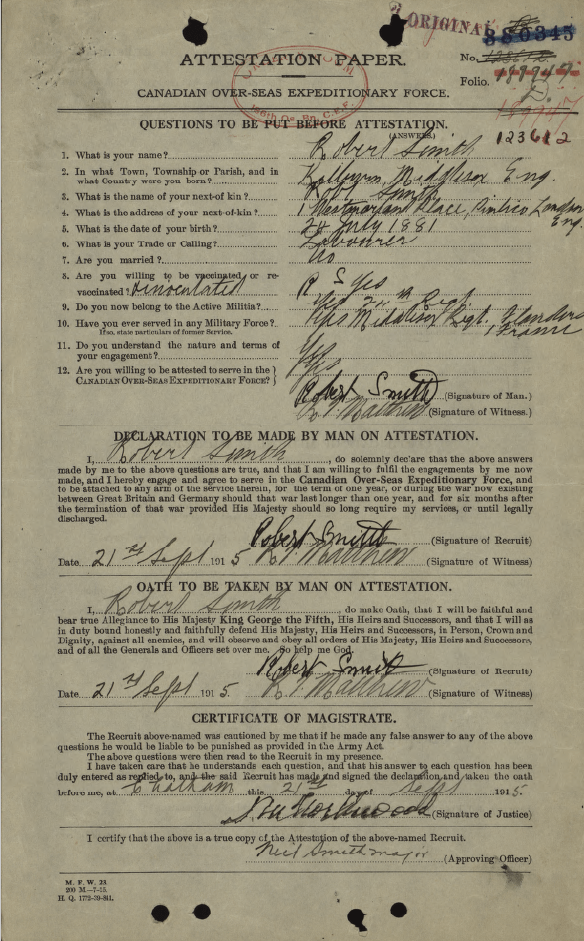 ORIGINAL
380345
ATTESTATION PAPER.
No.
Folio.
CANADIAN OVER-SEAS EXPEDITIONARY FORCE.
QUESTIONS TO BE PUT BEFORE ATTESTATION.
(ANSWERS.)
123612
1. What is your name? Robert Smith
2. In what Town, Township or Parish, and in what Country were you born? Middlesex Eng.
3. What is the name of your next-of-kin? Smith
4. What is the address of your next-of-kin? 1 Westmorland Place, Pimlico London Eng.
5. What is the date of your birth? 24 July 1881
6. What is your Trade or Calling? Labourer
7. Are you married? No
8. Are you willing to be vaccinated or re-vaccinated? & inoculated R S Yes
9. Do you now belong to the Active Militia? Yes 24th Regt.
10. Have you ever served in any Military Force? Regt.
If so, state particulars of former Service. France
11. Do you understand the nature and terms of your engagement? Yes
12. Are you willing to be attested to serve in the CANADIAN OVER-SEAS EXPEDITIONARY FORCE? Yes
Robert Smith (Signature of Man.)
(Signature of Witness.)
DECLARATION TO BE MADE BY MAN ON ATTESTATION.
I, Robert Smith, do solemnly declare that the above answers
made by me to the above questions are true, and that I am willing to fulfil the engagements by me now
made, and I hereby engage and agree to serve in the Canadian Over-Seas Expeditionary Force, and
to be attached to any arm of the service therein, for the term of one year, or during the war now existing
between Great Britain and Germany should that war last longer than one year, and for six months after
the termination of that war provided His Majesty should so long require my services, or until legally
discharged.
Robert Smith (Signature of Recruit)
Date 21st Sept 1915 (Signature of Witness)
OATH TO BE TAKEN BY MAN ON ATTESTATION.
I, Robert Smith, do make Oath, that I will be faithful and
bear true Allegiance to His Majesty King George the Fifth, His Heirs and Successors, and that I will as
in duty bound honestly and faithfully defend His Majesty, His Heirs and Successors, in Person, Crown and
Dignity, against all enemies, and will observe and obey all orders of His Majesty, His Heirs and Successors,
and of all the Generals and Officers set over me. So help me God.
Robert Smith (Signature of Recruit)
Date 21st Sept 1915. (Signature of Witness)
CERTIFICATE OF MAGISTRATE.
The Recruit above-named was cautioned by me that if he made any false answer to any of the above
questions he would be liable to be punished as provided in the Army Act.
The above questions were then read to the Recruit in my presence.
I have taken care that he understands each question, and that his answer to each question has been
duly entered as replied to, and the said Recruit has made and signed the declaration and taken the oath
before me, at Chatham this 21st day of Sept 1915.
(Signature of Justice)
I certify that the above is a true copy of the Attestation of the above-named Recruit.
Neil Smith major (Approving Officer)
M. F. W. 23.
200 M.—7-15.
H. Q. 1772-39-841.